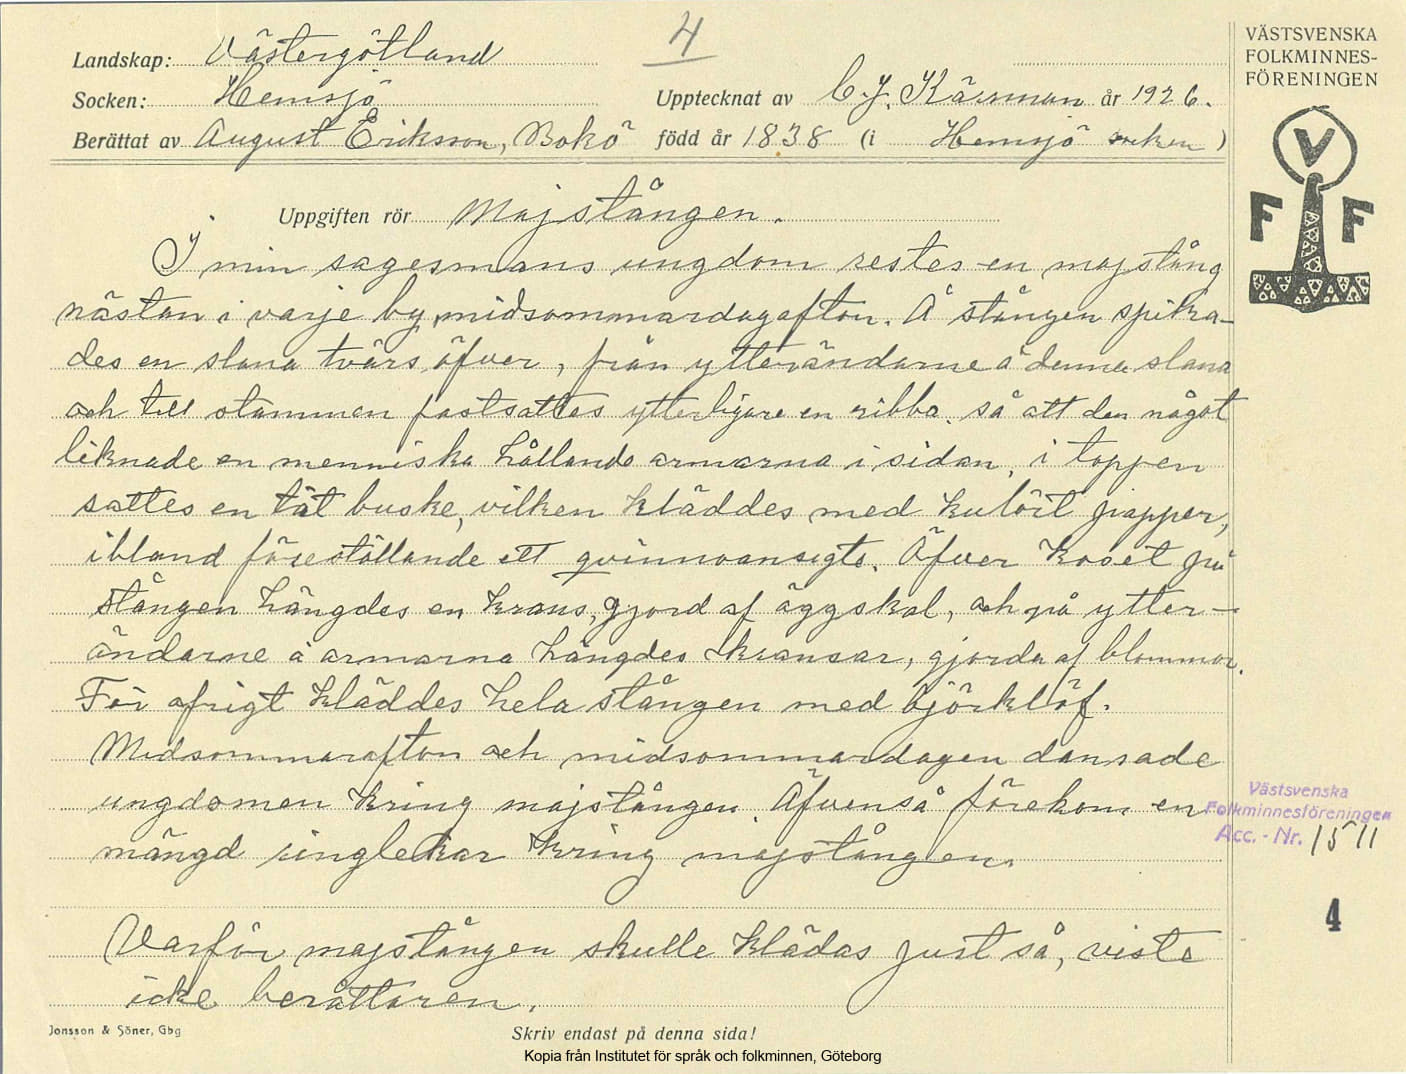 4
VÄSTSVENSKA
FOLKMINNES-
FÖRENINGEN
V
F F
Landskap: Västergötland
Socken: Hemsjö Upptecknat av C. J. Kärrman år 1926.
Berättat av August Eriksson, Bokö född år 1838 (i Hemsjö socken)
Uppgiften rör Majstången.
I min sagesmans ungdom restes en majstång
nästan i varje by midsommardagafton. Å stången spika-
des en slana tvärs öfver, från ytterändarne å denna slana
och till stammen fastsattes ytterligare en ribba, så att den något
liknade en menniska hållande armarna i sidan, i toppen
sattes en tät buske, vilken kläddes med kulört papper,
ibland föreställande ett qvinnoansigte. Öfver korset på
stången hängdes en krans, gjord af äggskal, och på ytter-
ändarne å armarna hängdes kransar, gjorda af blommor.
För öfrigt kläddes hela stången med björklöf.
Midsommarafton och midsommardagen dansade
ungdomen kring majstången. Äfvenså förekom en
mängd ringlekar kring majstången.
Varför majstången skulle klädas just så, viste
icke berättaren.
Västsvenska
Folkminnesföreningen
Acc. - Nr. 1511
4
Jonsson & Söner, Gbg
Skriv endast på denna sida!
Kopia från Institutet för språk och folkminnen, Göteborg